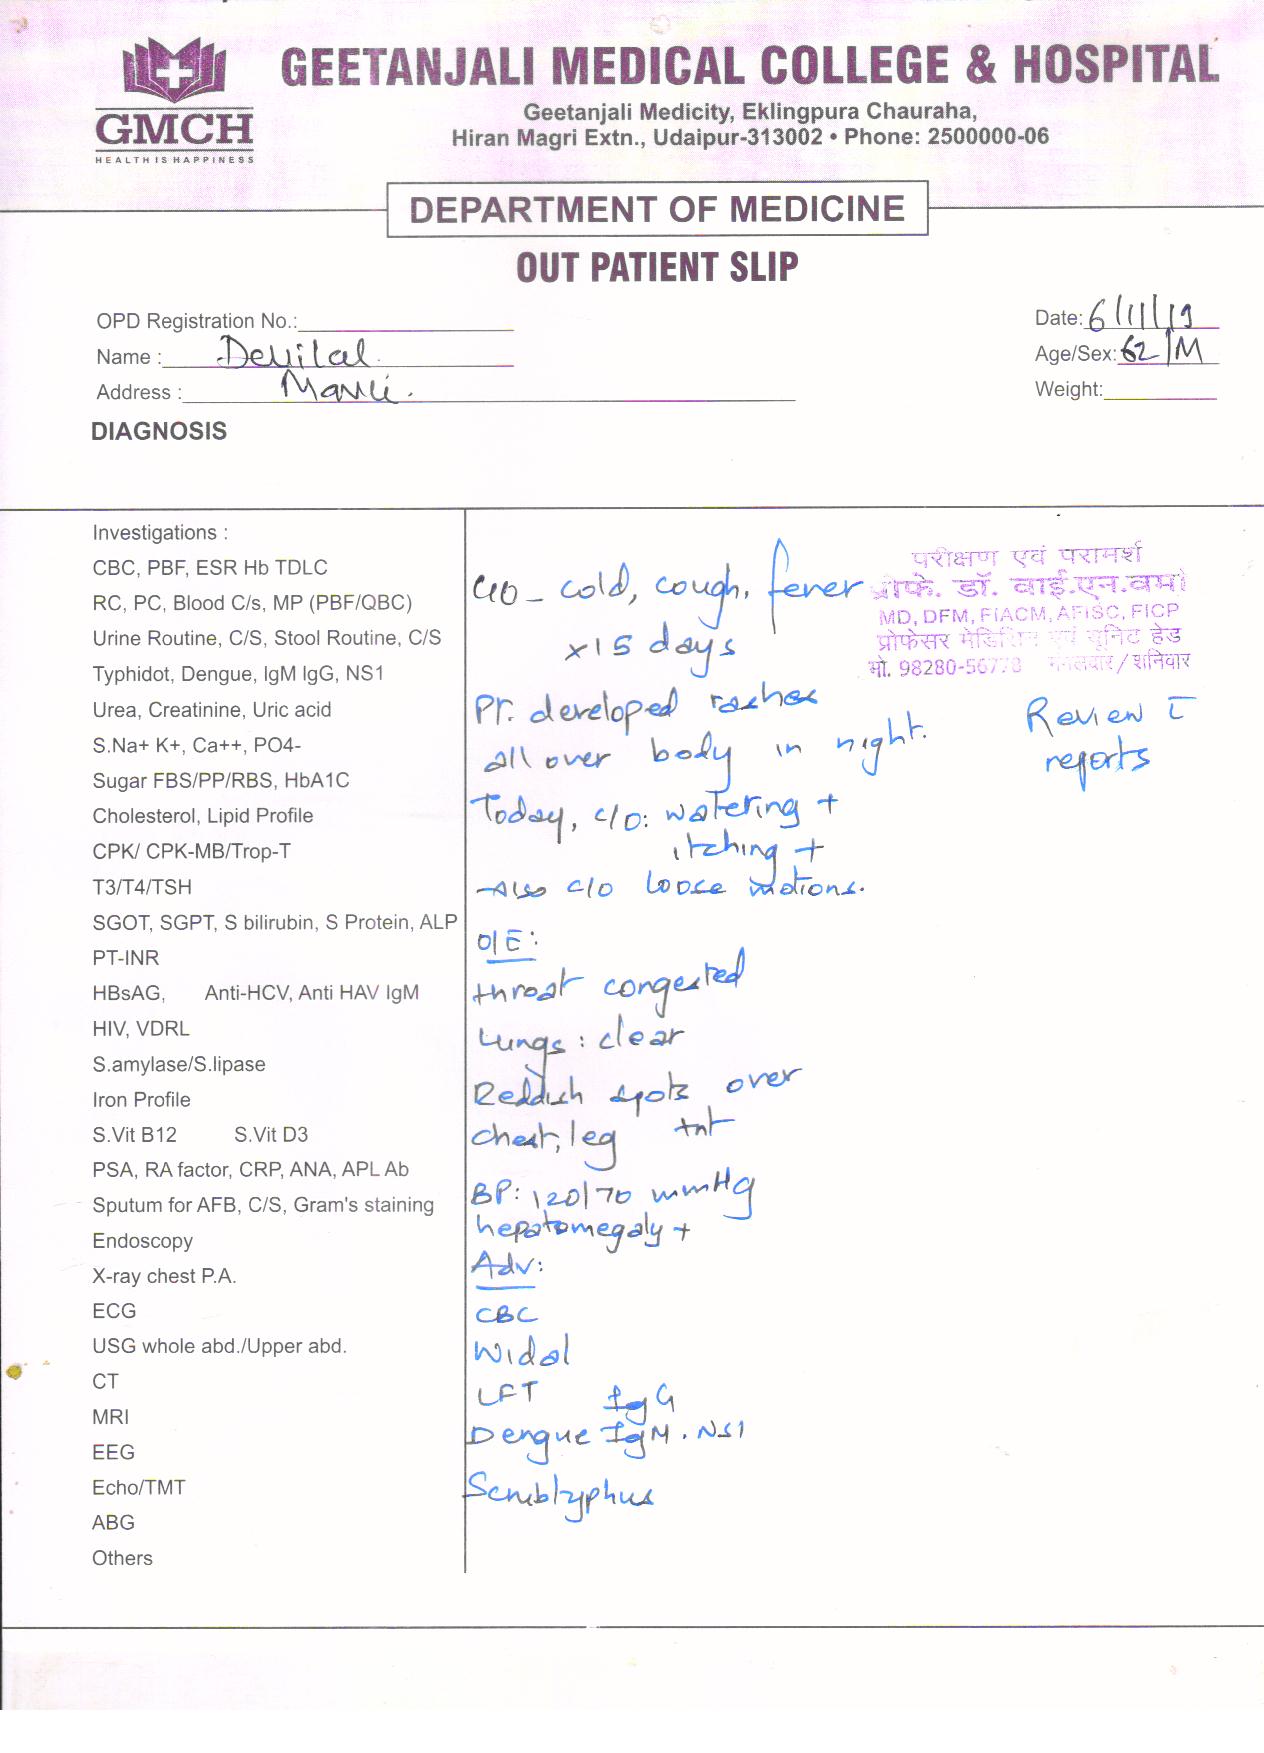 GMCH
HEALTH IS HAPPINESS
GEETANJALI MEDICAL COLLEGE & HOSPITAL
Geetanjali Medicity, Eklingpura Chauraha,
Hiran Magri Extn., Udaipur-313002 • Phone: 2500000-06
DEPARTMENT OF MEDICINE
OUT PATIENT SLIP
OPD Registration No.:
Date: 6/11/19
Name : Devilal
Age/Sex: 62/M
Address : Mavli.
Weight:
DIAGNOSIS
Investigations :
CBC, PBF, ESR Hb TDLC
RC, PC, Blood C/s, MP (PBF/QBC)
Urine Routine, C/S, Stool Routine, C/S
Typhidot, Dengue, IgM IgG, NS1
Urea, Creatinine, Uric acid
S.Na+ K+, Ca++, PO4-
Sugar FBS/PP/RBS, HbA1C
Cholesterol, Lipid Profile
CPK/ CPK-MB/Trop-T
T3/T4/TSH
SGOT, SGPT, S bilirubin, S Protein, ALP
PT-INR
HBsAG, Anti-HCV, Anti HAV IgM
HIV, VDRL
S.amylase/S.lipase
Iron Profile
S.Vit B12 S.Vit D3
PSA, RA factor, CRP, ANA, APL Ab
Sputum for AFB, C/S, Gram's staining
Endoscopy
X-ray chest P.A.
ECG
USG whole abd./Upper abd.
CT
MRI
EEG
Echo/TMT
ABG
Others
C/O - cold, cough, fever
x15 days
Pt. developed rashes
all over body in night.
Today, c/o: watering +
itching +
- Also c/o loose motions.
O/E:
throat congested
Lungs : clear
Reddish spots over
chest, leg +nt
BP: 120/70 mmHg
hepatomegaly +
Adv:
CBC
Widal
LFT IgG
Dengue IgM. NS1
Scrubtyphus
परीक्षण एवं परामर्श
प्रोफे. डॉ. वाई.एन.वर्मा
MD, DFM, FIACM, AFISC, FICP
प्रोफेसर मेडिसिन एवं यूनिट हेड
मो. 98280-56778 मंगलवार / शनिवार
Review c̄
reports